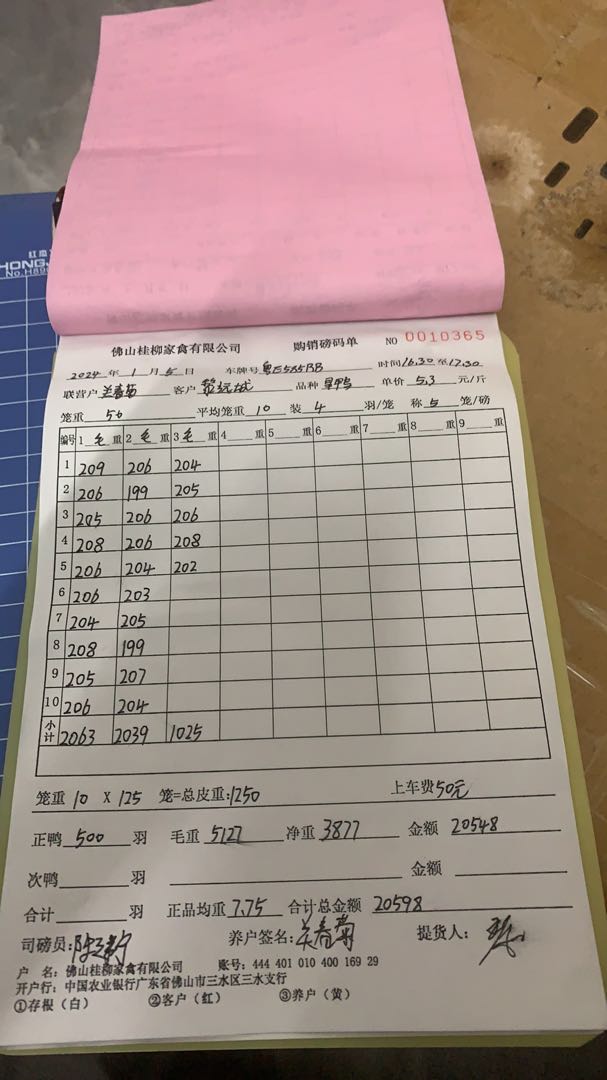 HONGJ
No.H89
佛山桂柳家禽有限公司 购销磅码单 NO 0010365
2024 年 1 月 5 日 车牌号 粤E585BB 时间 16.30 至 17.30
联营户 兰春菊 客户 品种 单价 5.3 元/斤
笼重 50 平均笼重 10 装 4 羽/笼 称 5 笼/磅
编号 1 毛 重 2 毛 重 3 毛 重 4 重 5 重 6 重 7 重 8 重 9 重
1 209 206 204
2 206 199 205
3 205 206 206
4 208 206 208
5 206 204 202
6 206 203
7 204 205
8 208 199
9 205 207
10 206 204
小计 2063 2039 1025
笼重 10 X 125 笼=总皮重: 1250 上车费 50元
正鸭 500 羽 毛重 5127 净重 3877 金额 20548
次鸭 羽 金额
合计 羽 正品均重 7.75 合计总金额 20598
司磅员: 养户签名: 提货人:
户 名: 佛山桂柳家禽有限公司 账号: 444 401 010 400 169 29
开户行: 中国农业银行广东省佛山市三水区三水支行
①存根（白） ②客户（红） ③养户（黄）